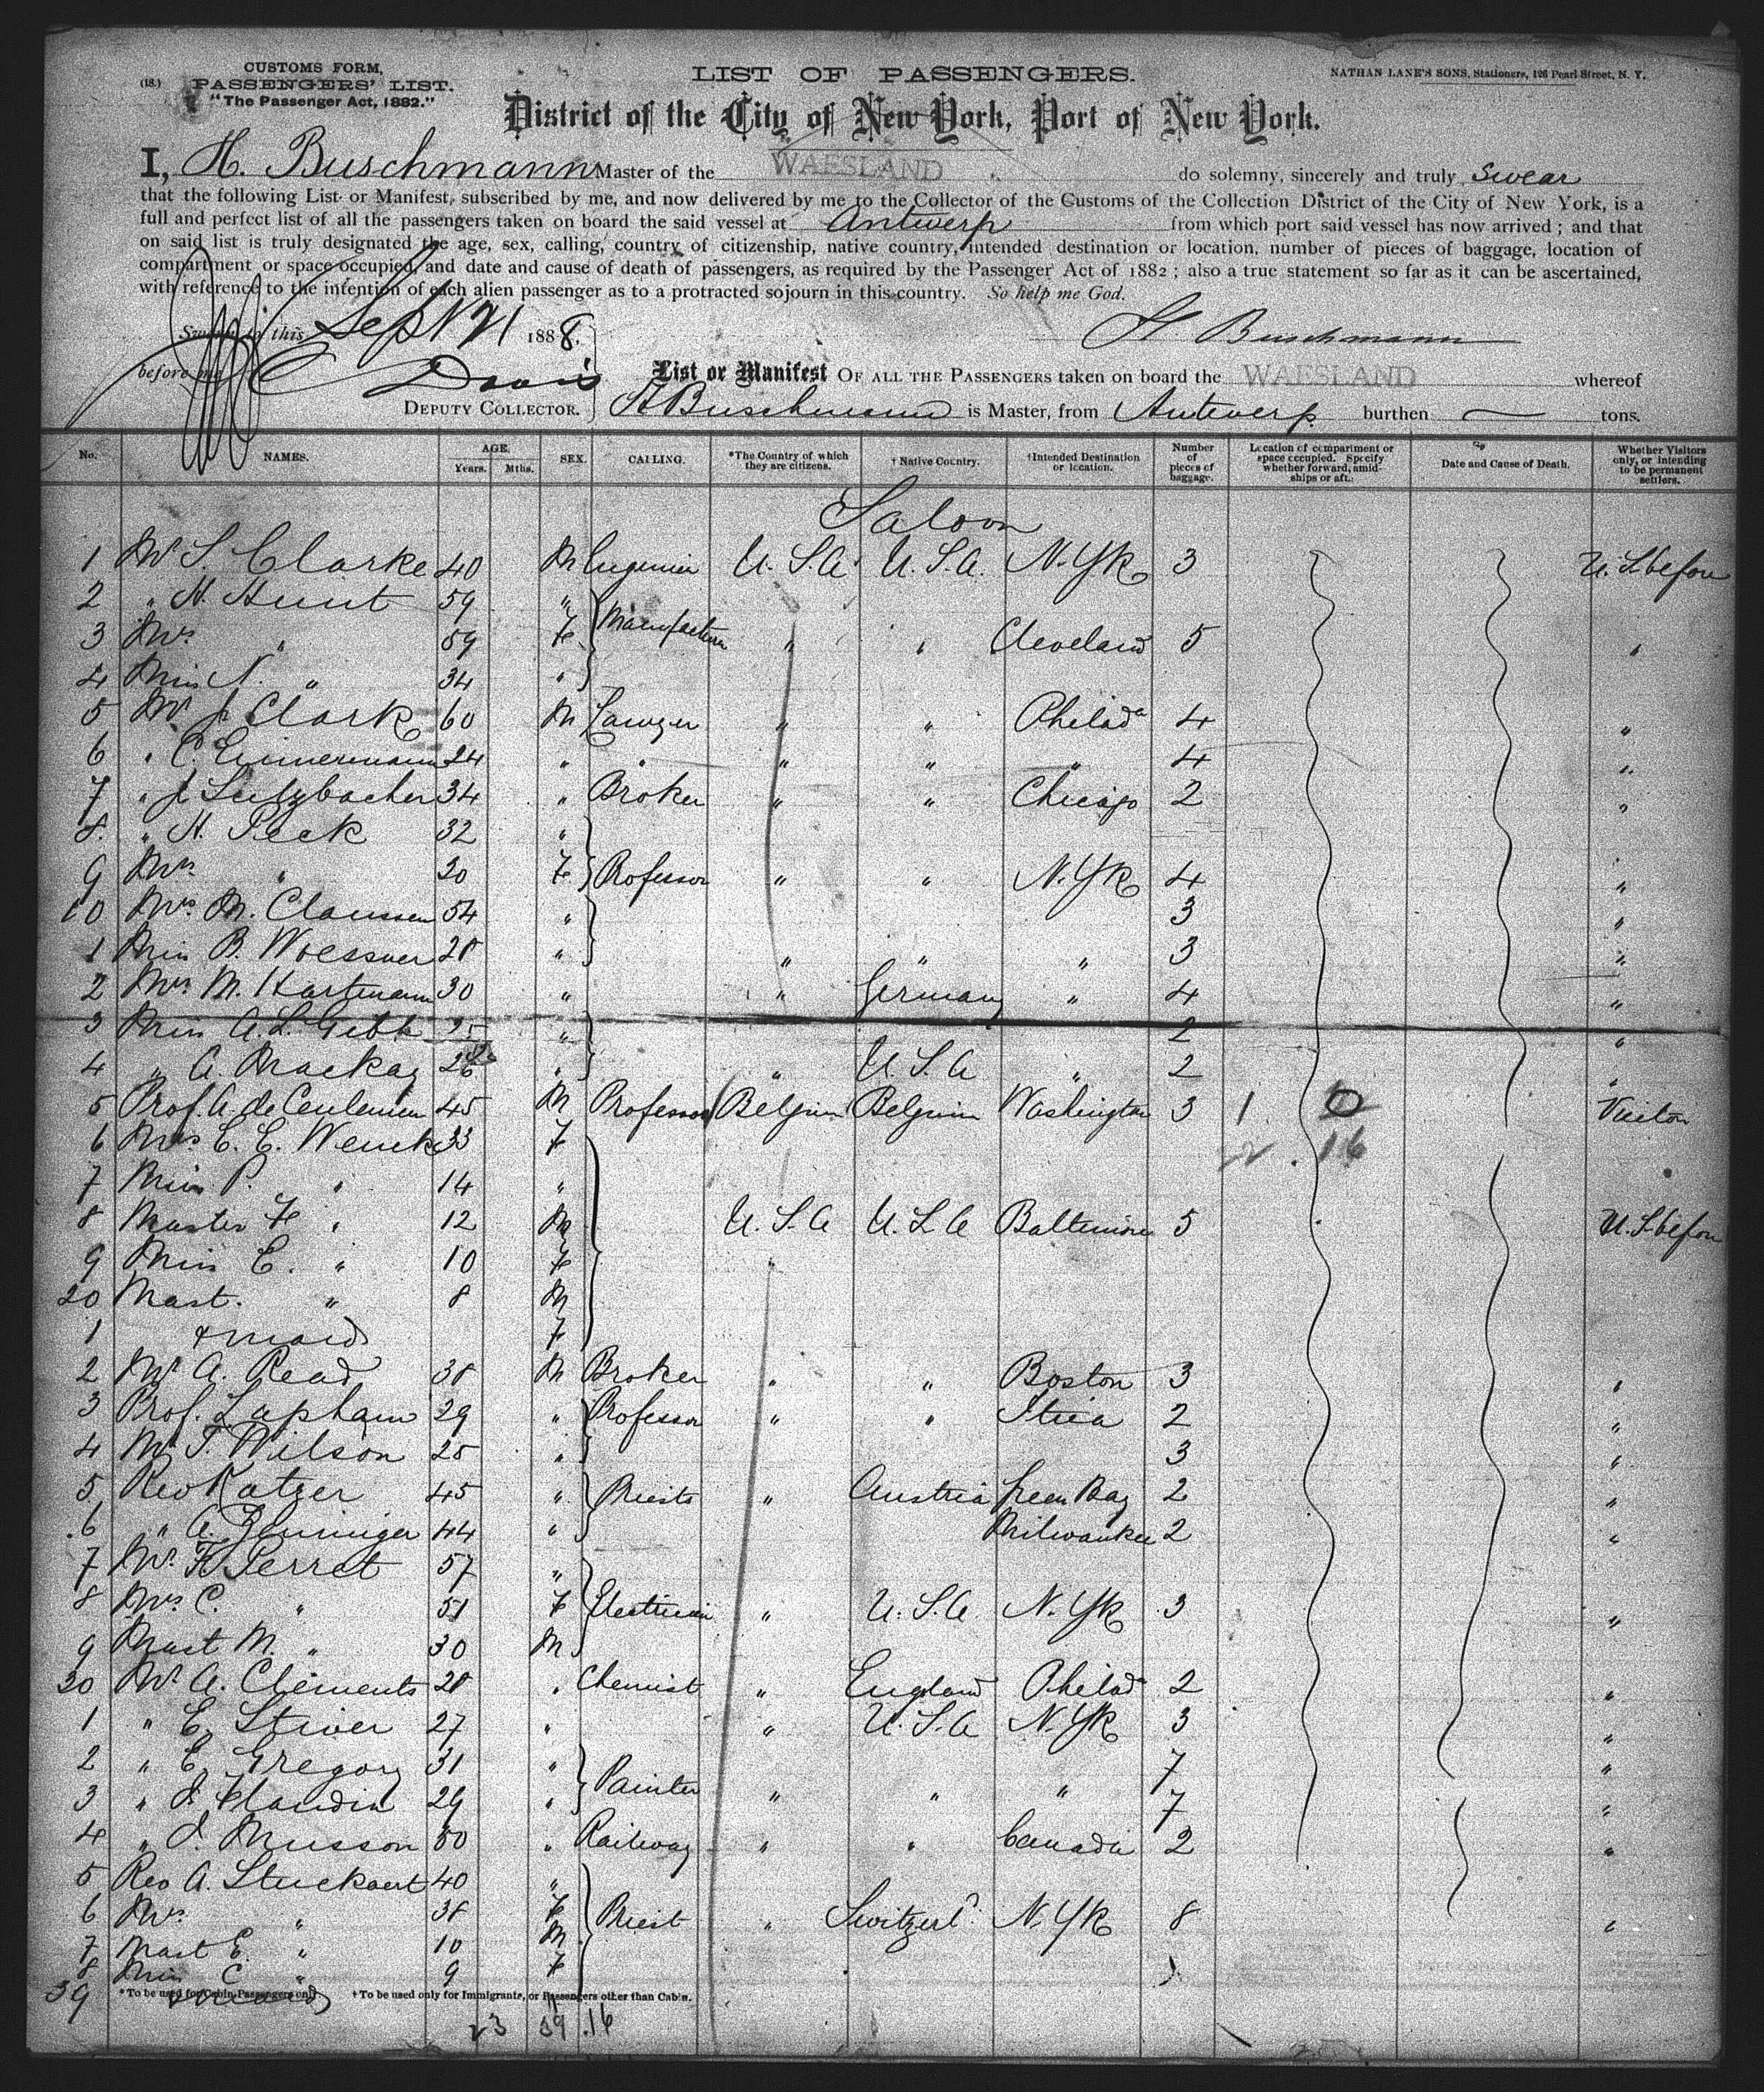 (18.) CUSTOMS FORM,
PASSENGERS' LIST.
"The Passenger Act, 1882."
LIST OF PASSENGERS.
NATHAN LANE'S SONS, Stationers, 126 Pearl Street, N. Y.
District of the City of New York, Port of New York.
I, H. Buschmann Master of the WAESLAND do solemny, sincerely and truly swear
that the following List or Manifest, subscribed by me, and now delivered by me to the Collector of the Customs of the Collection District of the City of New York, is a
full and perfect list of all the passengers taken on board the said vessel at Antwerp from which port said vessel has now arrived ; and that
on said list is truly designated the age, sex, calling, country of citizenship, native country, intended destination or location, number of pieces of baggage, location of
compartment or space occupied, and date and cause of death of passengers, as required by the Passenger Act of 1882 ; also a true statement so far as it can be ascertained,
with reference to the intention of each alien passenger as to a protracted sojourn in this country. So help me God.
Sworn to this Sept 21 1888. H Buschmann
before me Davis List or Manifest OF ALL THE PASSENGERS taken on board the WAESLAND whereof
DEPUTY COLLECTOR. H Buschmann is Master, from Antwerp burthen — tons.
No. NAMES. AGE. Years. Mths. SEX. CALLING. *The Country of which they are citizens. † Native Country. †Intended Destination or location. Number of pieces of baggage. Location of compartment or space occupied. Specify whether forward, amid-ships or aft. Date and Cause of Death. Whether Visitors only, or intending to be permanent settlers.
Saloon
1 Mr S. Clarke 40 M Engenier U.S.A U.S.A. N.Yk 3 U.S. before
2 " H. Hunt 59 "
3 Mrs " 59 F Manufacturer " " Cleveland 5 "
4 Miss N. " 34 "
5 Mr J. Clark 60 M Lawyer " " Philada 4 "
6 " C. 24 " " " " " 4 "
7 " J Sulzbacher 34 " Broker " " Chicago 2 "
8. " H. Peck 32 "
9 Mrs " 20 F Professor " " N.Yk 4 "
10 Mrs. M. Claussen 54 " 3 "
1 Miss B. Woessner 28 " " " " 3 "
2 Mrs M. Hartmann 30 " " Germany " 4 "
3 Miss A.L. Gibb 25 " 2 "
4 " A. Mackay 26 " " U.S.A " 2 "
5 Prof. A. de Ceuleneer 45 M Professor Belgium Belgium Washington 3 1 0 Visitor
6 Mrs E. E. Wenck 33 F 2 . 16
7 Miss P. " 14 "
8 Master F " 12 M U.S.A U.S.A Baltimore 5 U.S. before
9 Miss E. " 10 F "
20 Mast. " 8 M
1 & maid F
2 Mr A. Read 38 M Broker " " Boston 3 "
3 Prof. Lapham 29 " Professor " " 2 "
4 Mr T. Wilson 25 " 3 "
5 Rev Katzer 45 " Priests " Austria Green Bay 2 "
6 " A. Zeininger 44 " Milwaukee 2 "
7 Mr. F. Perret 57 "
8 Mrs C. " 51 F Electrician " U.S.A N.Yk 3 "
9 Mast M. " 30 M
30 Mr. A. Clements 28 " Chemist " England Philada 2 "
1 " E. Stiver 27 " " U.S.A N.Yk 3 "
2 " E. Gregory 31 " 7 "
3 " J. Flandin 29 " Painter " " " 7 "
4 " J. Musson 50 " Railway " " Canada 2 "
5 Rev A. Stuckaert 40 "
6 Mrs " 38 F Priest " Switzerld. N.Yk 8 "
7 Mast E. " 10 M
8 Miss C " 9 F
39 & maid "
*To be used for Cabin Passengers only. †To be used only for Immigrants, or Passengers other than Cabin.
23 39 .16